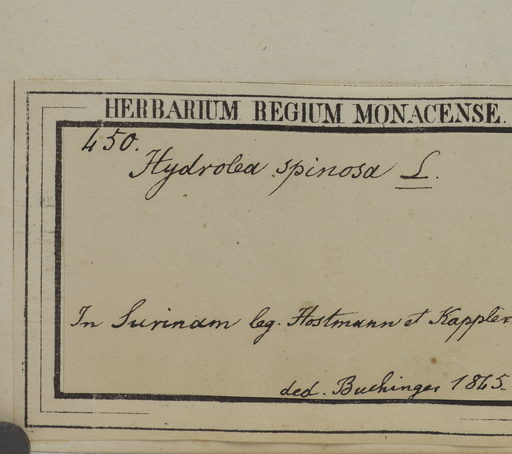 HERBARIUM REGIUM MONACENSE.
450.
Hydrolea spinosa L.
In Surinam leg. Hostmann et Kappler
ded. Buchinger 1845.